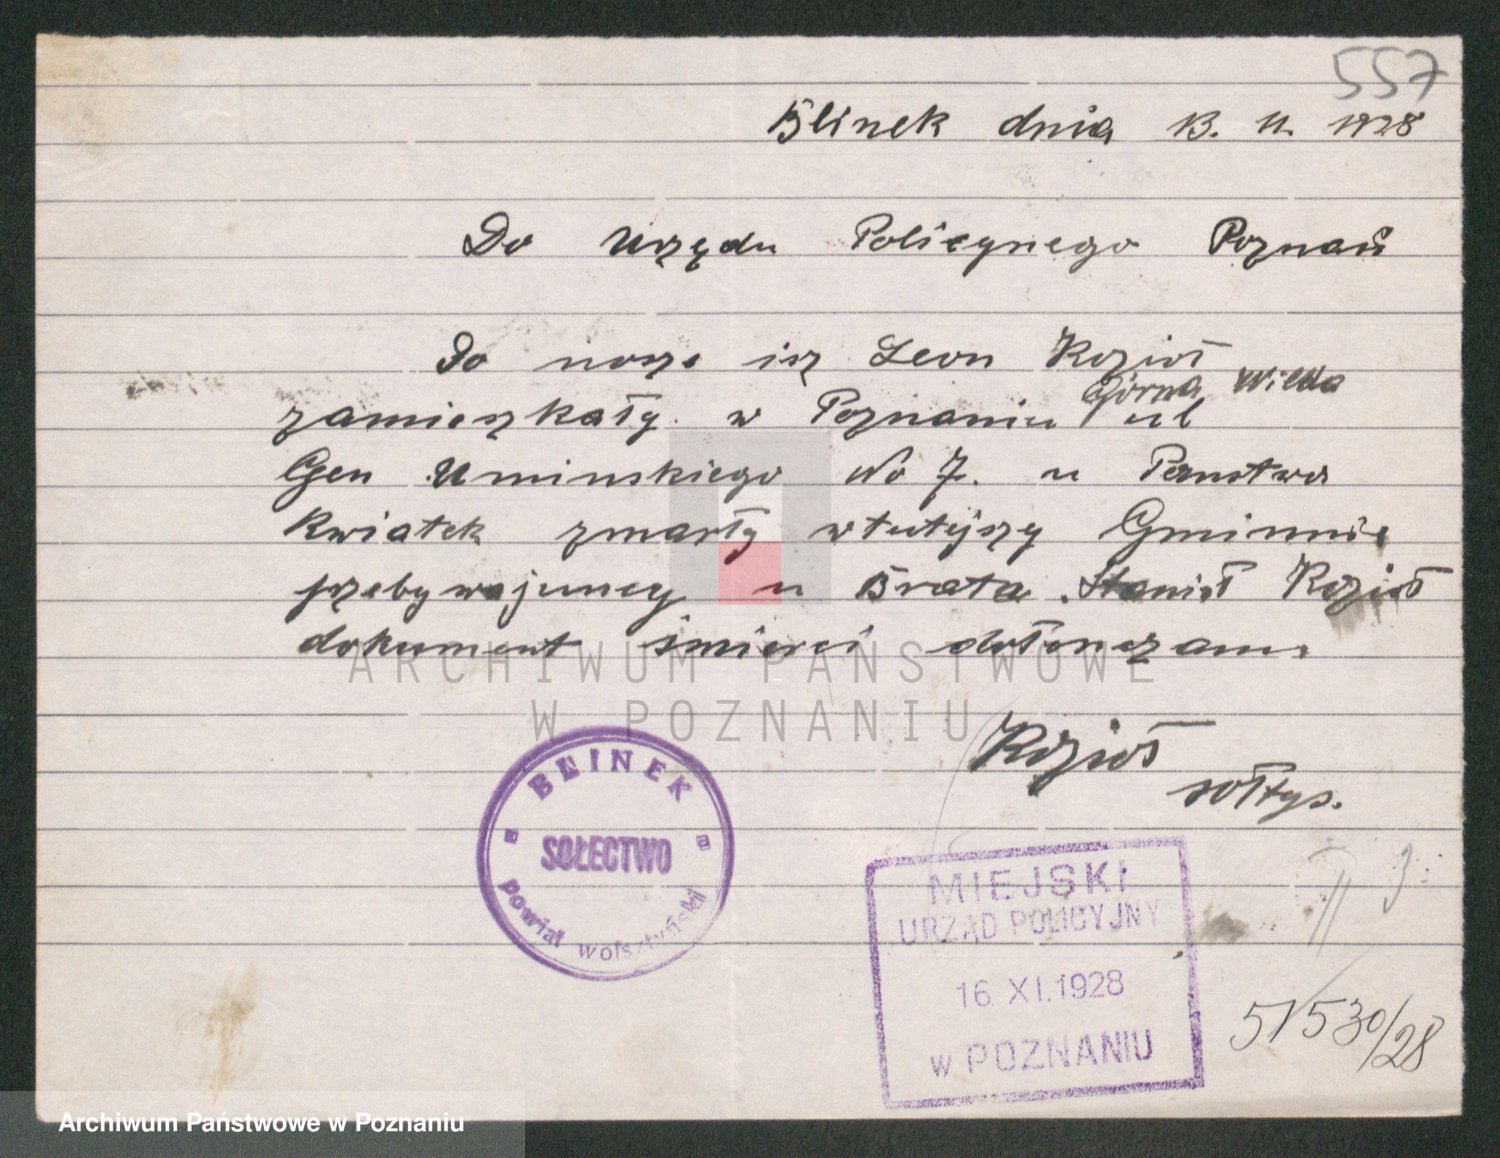 557
Blinek dnia 13. 11. 1928
Do Urzędu Policynego Poznań
Do nosze isz Leon Kozioł
Górna Wilda
zamieszkały w Poznaniu ul
Gen Uminskiego No 7. u Państwa
Kwiatek zmarły wtutejszy Gminnie
przebywajuncy u Brata Stanisł Kozioł
dokument śmierci dołonczam.
Kozioł
sołtys.
BŁINEK
SOŁECTWO
powiat wolsztyński
MIEJSKI
URZĄD POLICYJNY
16. XI. 1928
w POZNANIU
51530/28
ARCHIWUM PAŃSTWOWE
W POZNANIU
Archiwum Państwowe w Poznaniu